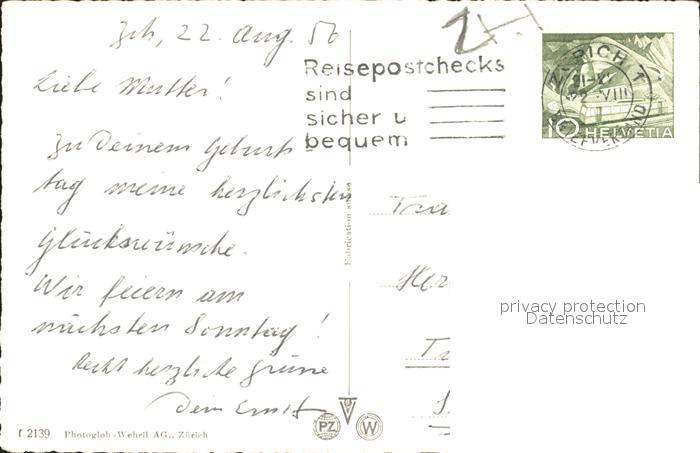 Zch, 22. Aug. 56
Liebe Mutter!
Zu Deinem Geburts
tag meine herzlichsten
Glückswünsche.
Wir feiern am
nächsten Sonntag!
Recht herzliche Grüsse
Dein Ernst
Reisepostchecks
sind
sicher u
bequem
ZÜRICH 1
22.VIII
BRIEFVERSAND
10 HELVETIA
Fabrication suisse
Frau
Her
privacy protection
Datenschutz
f 2139 Photoglob-Wehrli AG., Zürich
PZ
W